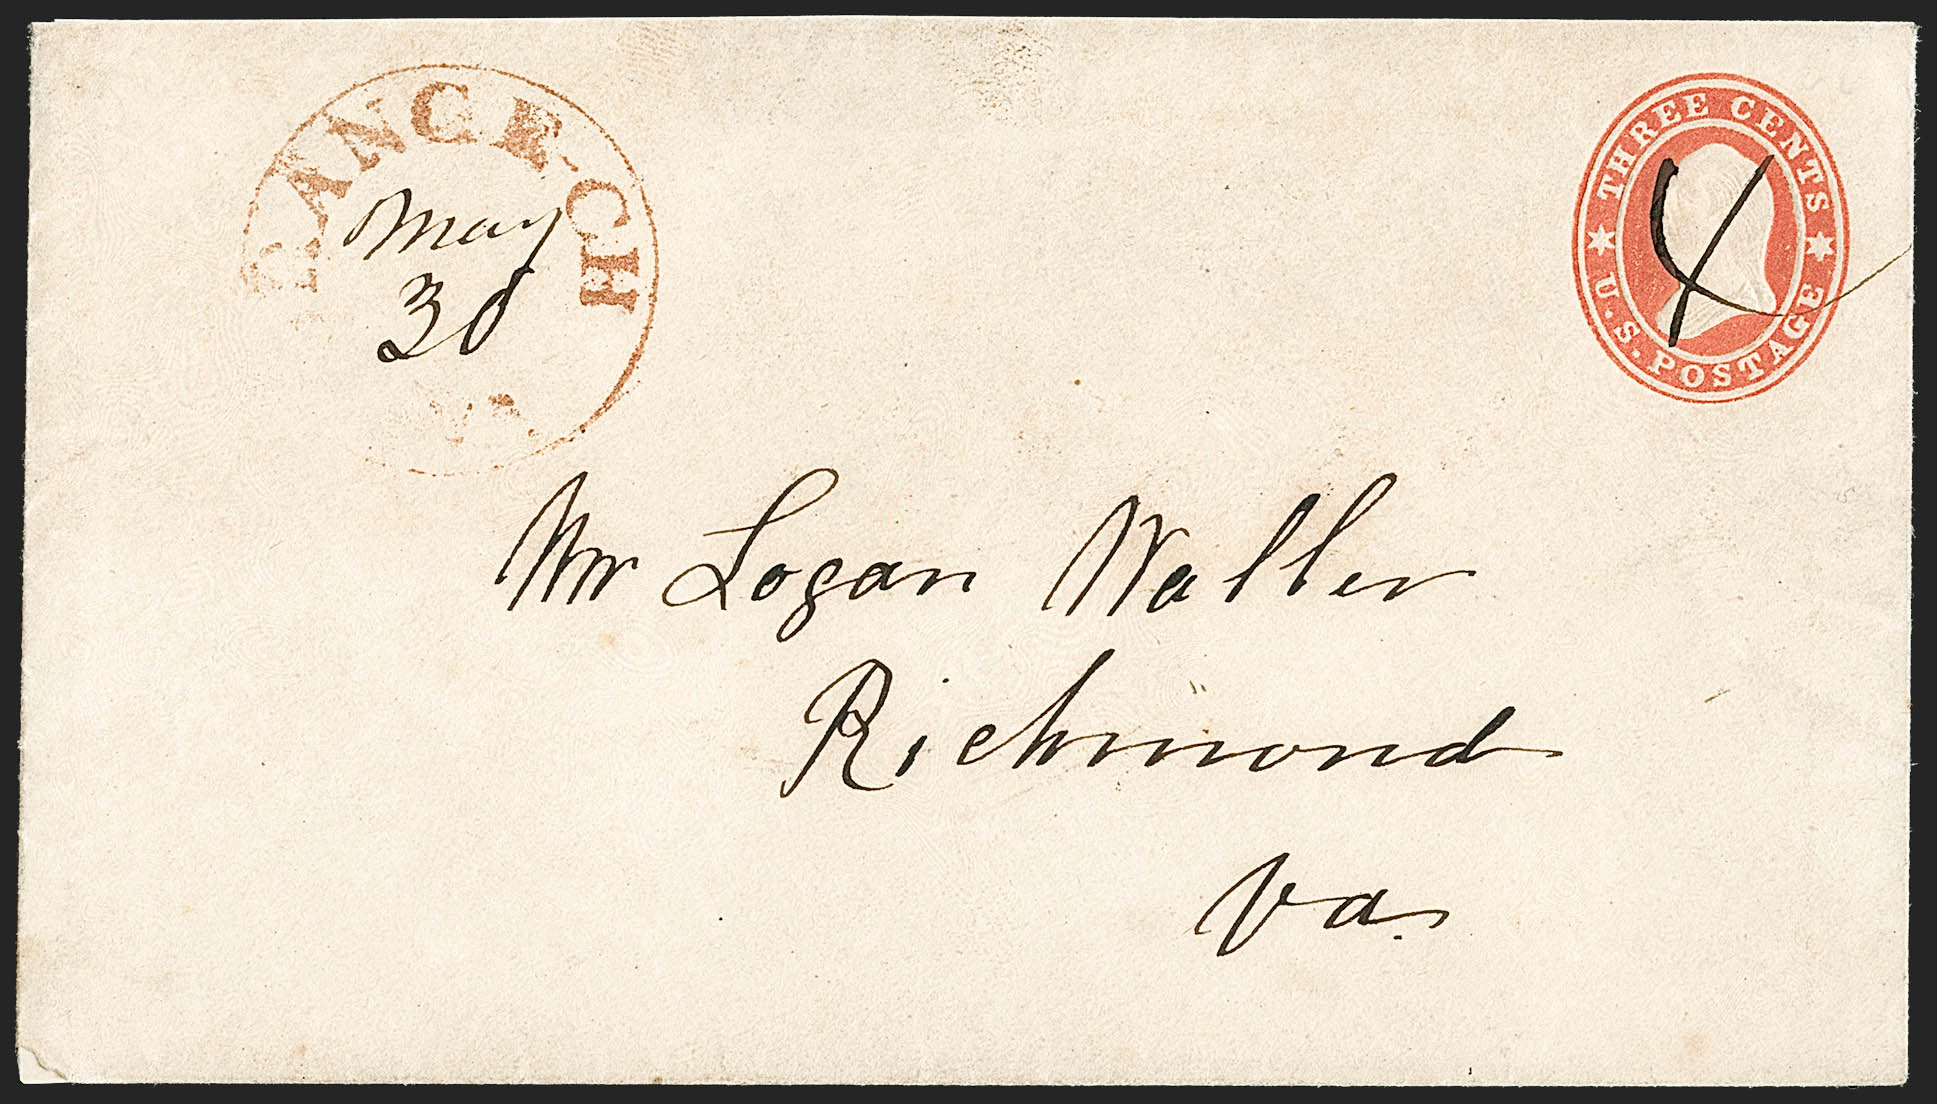 RANGE C H
May
30
Va.
THREE CENTS
U.S. POSTAGE
Mr Logan Waller
Richmond
Va.